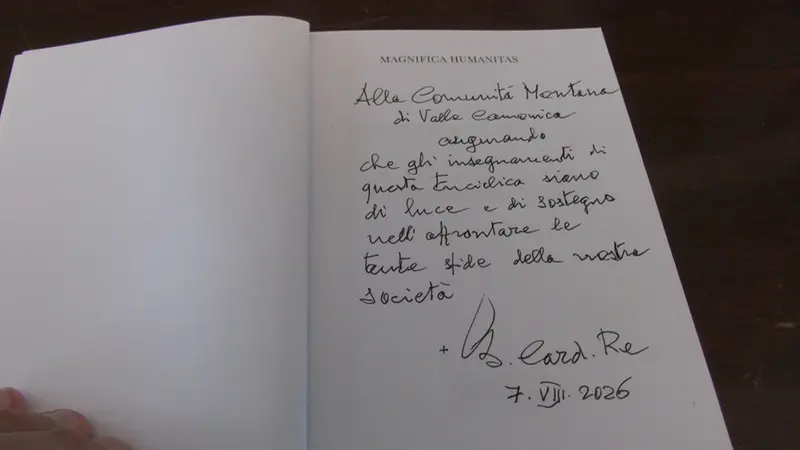 MAGNIFICA HUMANITAS
Alla Comunità Montana
di Valle Camonica
augurando
che gli insegnamenti di
questa Enciclica siano
di luce e di sostegno
nell'affrontare le
tante sfide della nostra
società
+ B. Card. Re
7. VIII. 2026